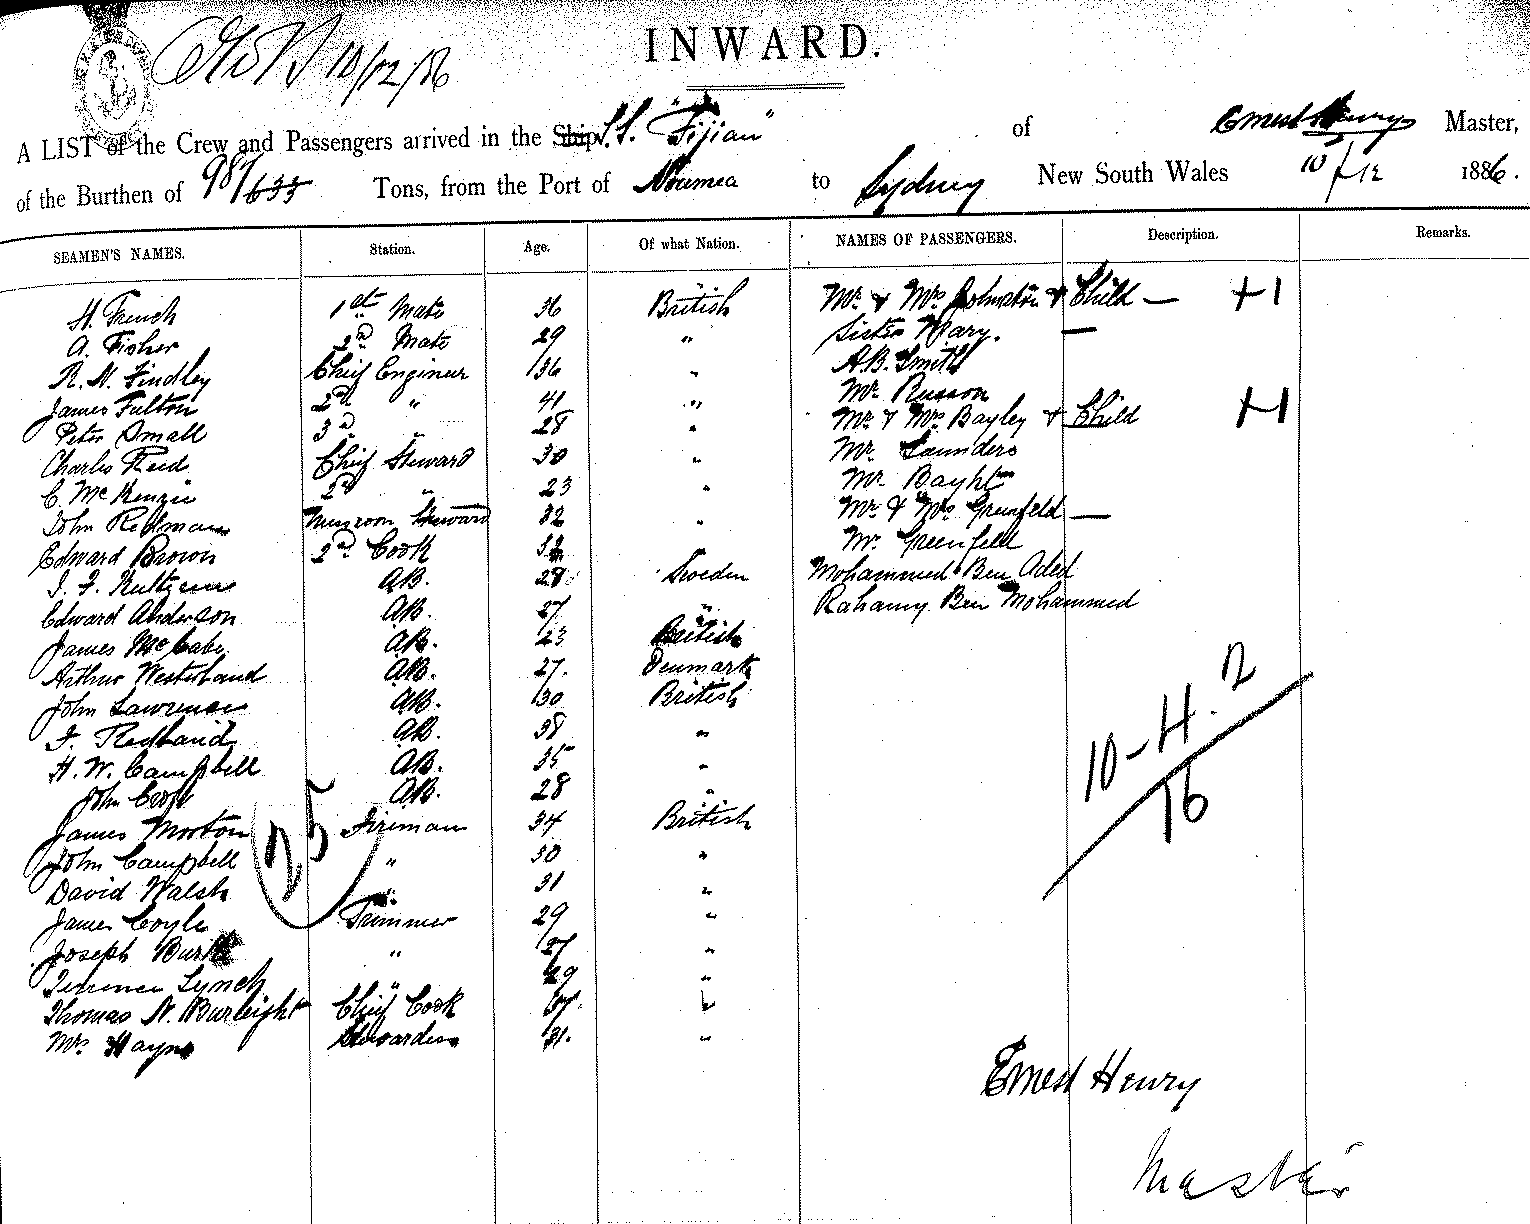 10/12/86
INWARD.
A LIST of the Crew and Passengers arrived in the Ship S.S. "Fijian" of Ernest Henry Master,
of the Burthen of 987/633 Tons, from the Port of Noumea to Sydney New South Wales 10/12 1886.
SEAMEN'S NAMES. Station. Age. Of what Nation. NAMES OF PASSENGERS. Description. Remarks.
H. French 1st Mate 36 British Mr. & Mrs Johnston & Child — +1
A. Fisher 2nd Mate 29 " Sister Mary. —
R. N. Findley Chief Engineer 36 " A.B. Smith
James Fulton 2nd " 41 " Mr. Russon
Peter Small 3d " 28 " Mr. & Mrs Bayley & Child +1
Charles Reid Chief Steward 30 " Mr. Saunders
C. McKenzie 2d " 23 " Mr. Bayht
John Redman Messroom Steward 32 " Mr & Mrs Greenfeld —
Edward Brown 2nd Cook 32 " Mr. Greenfeld
AB. 28 Sweden Mohammed Ben Aded
Edward Anderson AB. 27 " Rahamy Ben Mohammed
James McCabe AB. 23 British
Arthur Westerland AB. 27. Denmark
John Lawrence AB. 30 British
F. Redband AB. 38 "
H. W. Campbell AB. 35 "
John Cook AB. 28 "
James Morton Fireman 34 British
John Campbell " 30 "
David Walsh " 31 "
James Coyle Trimmer 29 "
Joseph Burke " 27 "
Terrence Lynch " 29 "
Thomas N. Burleigh Chief Cook 37. "
Mrs Hayne Stewardess 31. "
25
10-4.2
16
Ernest Henry
Master